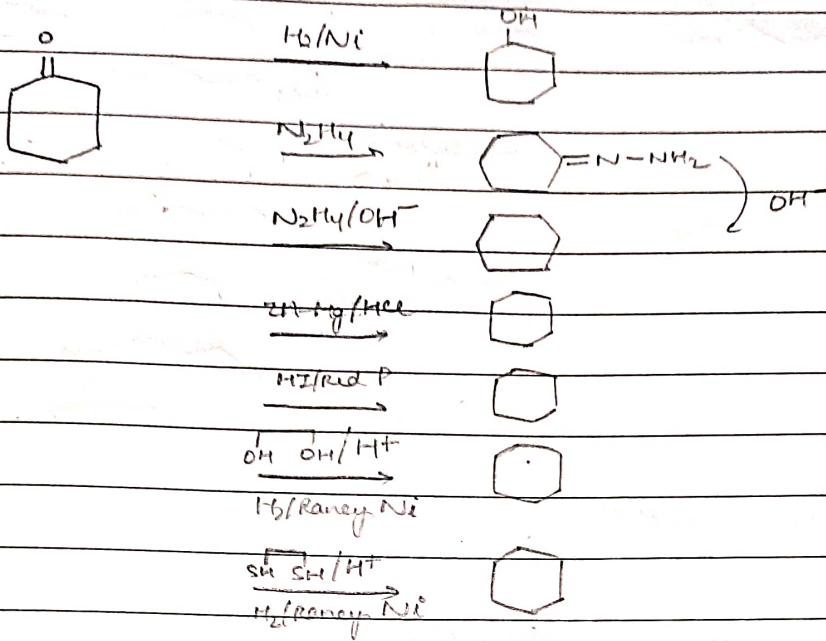 O
H2/Ni
OH
N2H4
=N-NH2
OH-
N2H4/OH-
Zn-Hg/HCl
HI/Red P
OH OH/H+
H2/Raney Ni
SH SH/H+
H2/Raney Ni